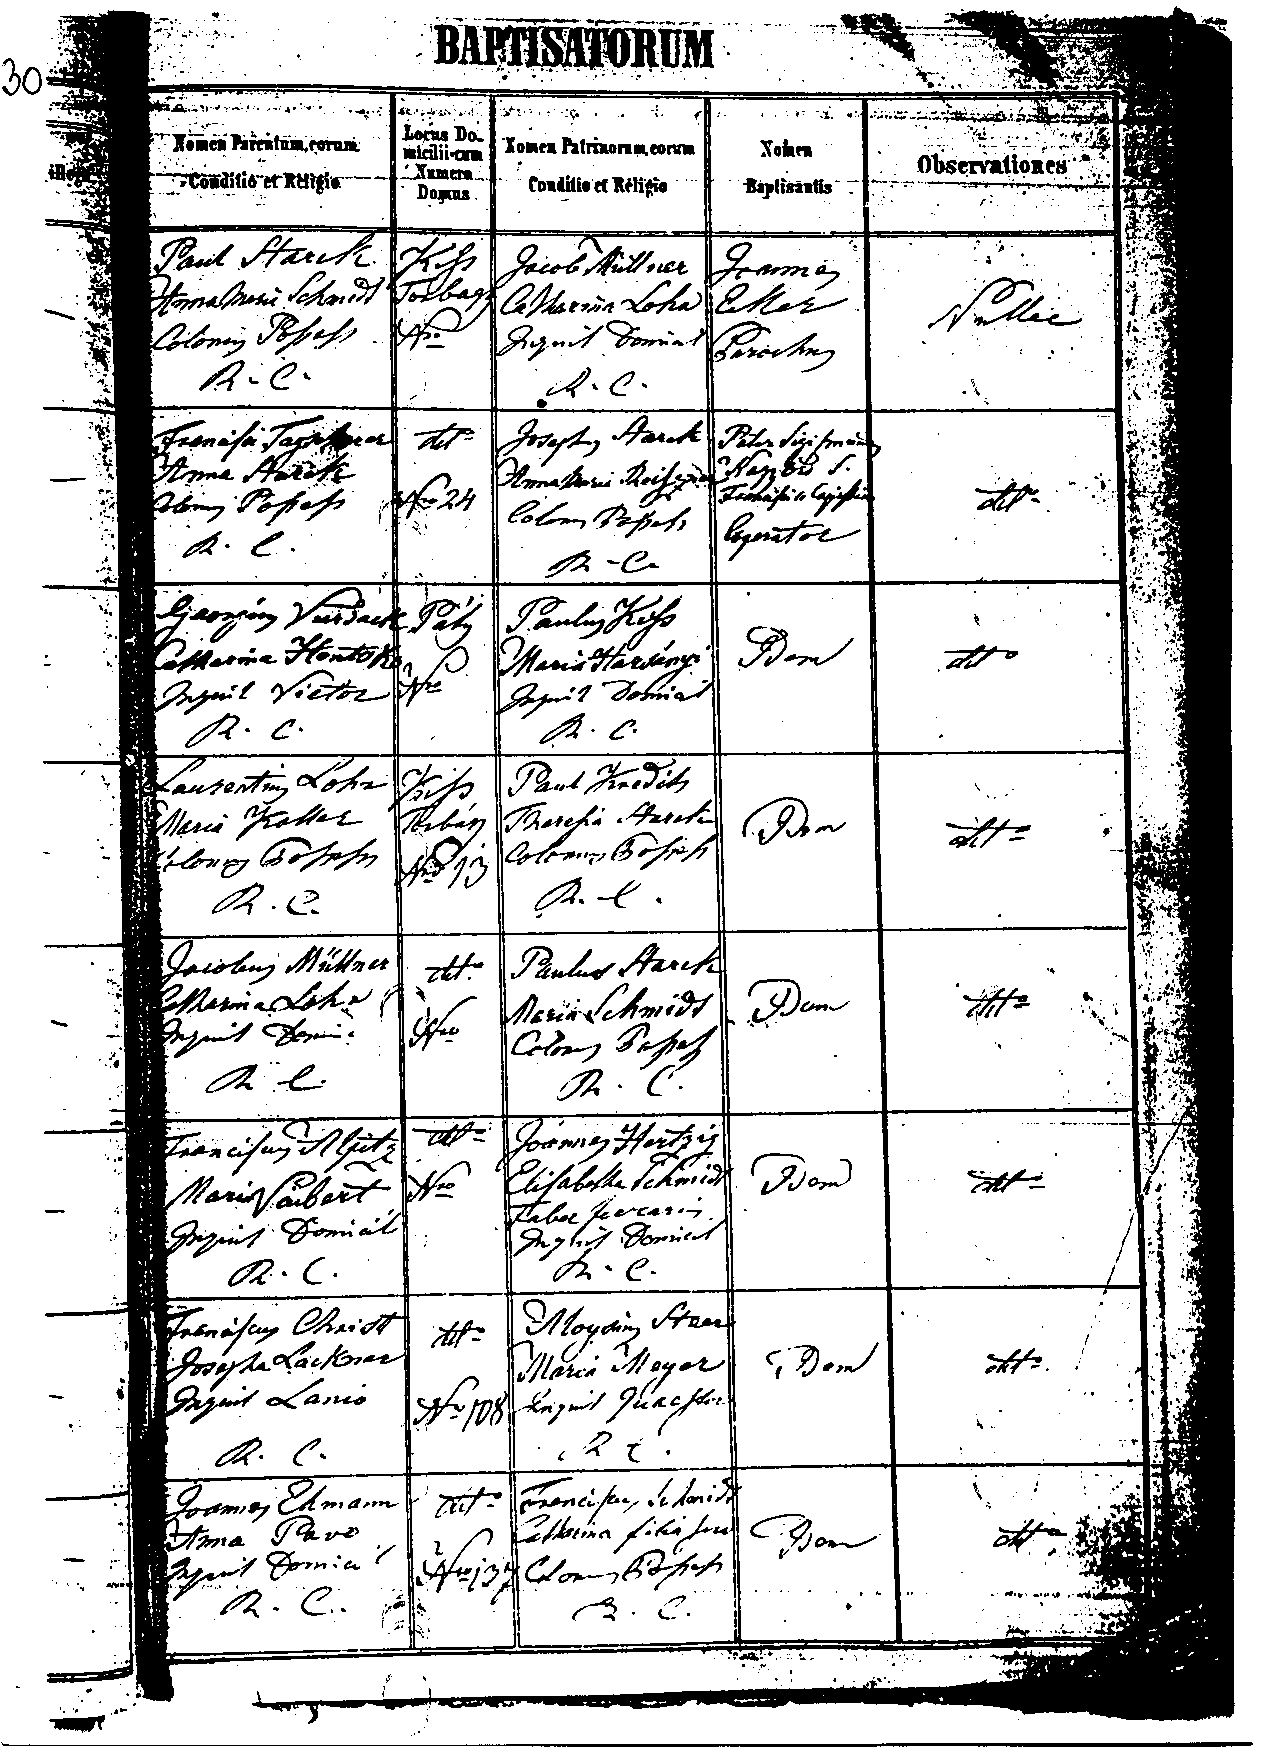 BAPTISATORUM
30
Nomen Parentum, eorum
Conditio et Religio
Locus Do-
micilii cum
Numero
Domus
Nomen Patrinorum, eorum
Conditio et Religio
Nomen
Baptisantis
Observationes
Paul Starck
Anna Maria Schmidt
Colonus Possess
R. C.
Kiss
Torbagy
Nro
Jacob Müllner
Catharina Loha
Inquil Domical
R. C.
Joannes
Ekker
Parochus
Nullae
Anna Starck
Colonus Possess
R. C.
dtto
Nro 24
Josephus Starck
Anna Maria
Colonus Possess
R. C.
Pater
Cooperator
dtto
Georgius
Catharina
Inquil Vietor
R. C.
Páty
Nro
Paulus Kiss
Maria Harsányi
Inquil Domicil
R. C.
Idem
dtto
Laurentius Loha
Maria Koller
Colonus Possess
R. C.
Kiss
Torbágy
Nro 13
Paul
Theresia Starck
Colonus Possess
R. C.
Idem
dtto
Jacobus Müllner
Catharina Loha
Inquil Domic
R. C.
dtto
Nro
Paulus Starck
Maria Schmidt
Colonus Possess
R. C.
Idem
dtto
Franciscus
Maria
Inquil Domicil
R. C.
dtto
Nro
Joannes Hertzig
Elisabetha Schmidt
Faber
Inquil Domicil
R. C.
Idem
dtto
Franciscus Christ
Josepha Lackner
Inquil Lanio
R. C.
dtto
Nro 108
Aloysius
Maria Meyer
Inquil
R. C.
Idem
dtto
Joannes Edmann
Anna
Inquil Domicil
R. C.
dtto
Nro 137
Franciscus Schmidt
Catharina filia
Colonus Possess
R. C.
Idem
dtto